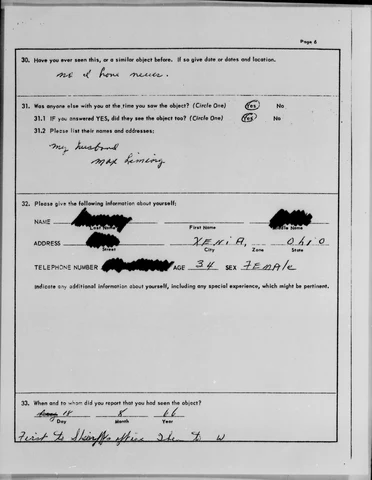 Page 6
30. Have you ever seen this, or a similar object before. If so give date or dates and location.
no I have never.
31. Was anyone else with you at the time you saw the object? (Circle One) Yes No
31.1 IF you answered YES, did they see the object too? (Circle One) Yes No
31.2 Please list their names and addresses:
my husband
max
32. Please give the following information about yourself:
NAME
Last Name First Name Middle Name
ADDRESS XENIA, OhIO
Street City Zone State
TELEPHONE NUMBER AGE 34 SEX FEMAlE
Indicate any additional information about yourself, including any special experience, which might be pertinent.
33. When and to whom did you report that you had seen the object?
18 8 66
Day Month Year
First to Sheriffs office Then to W